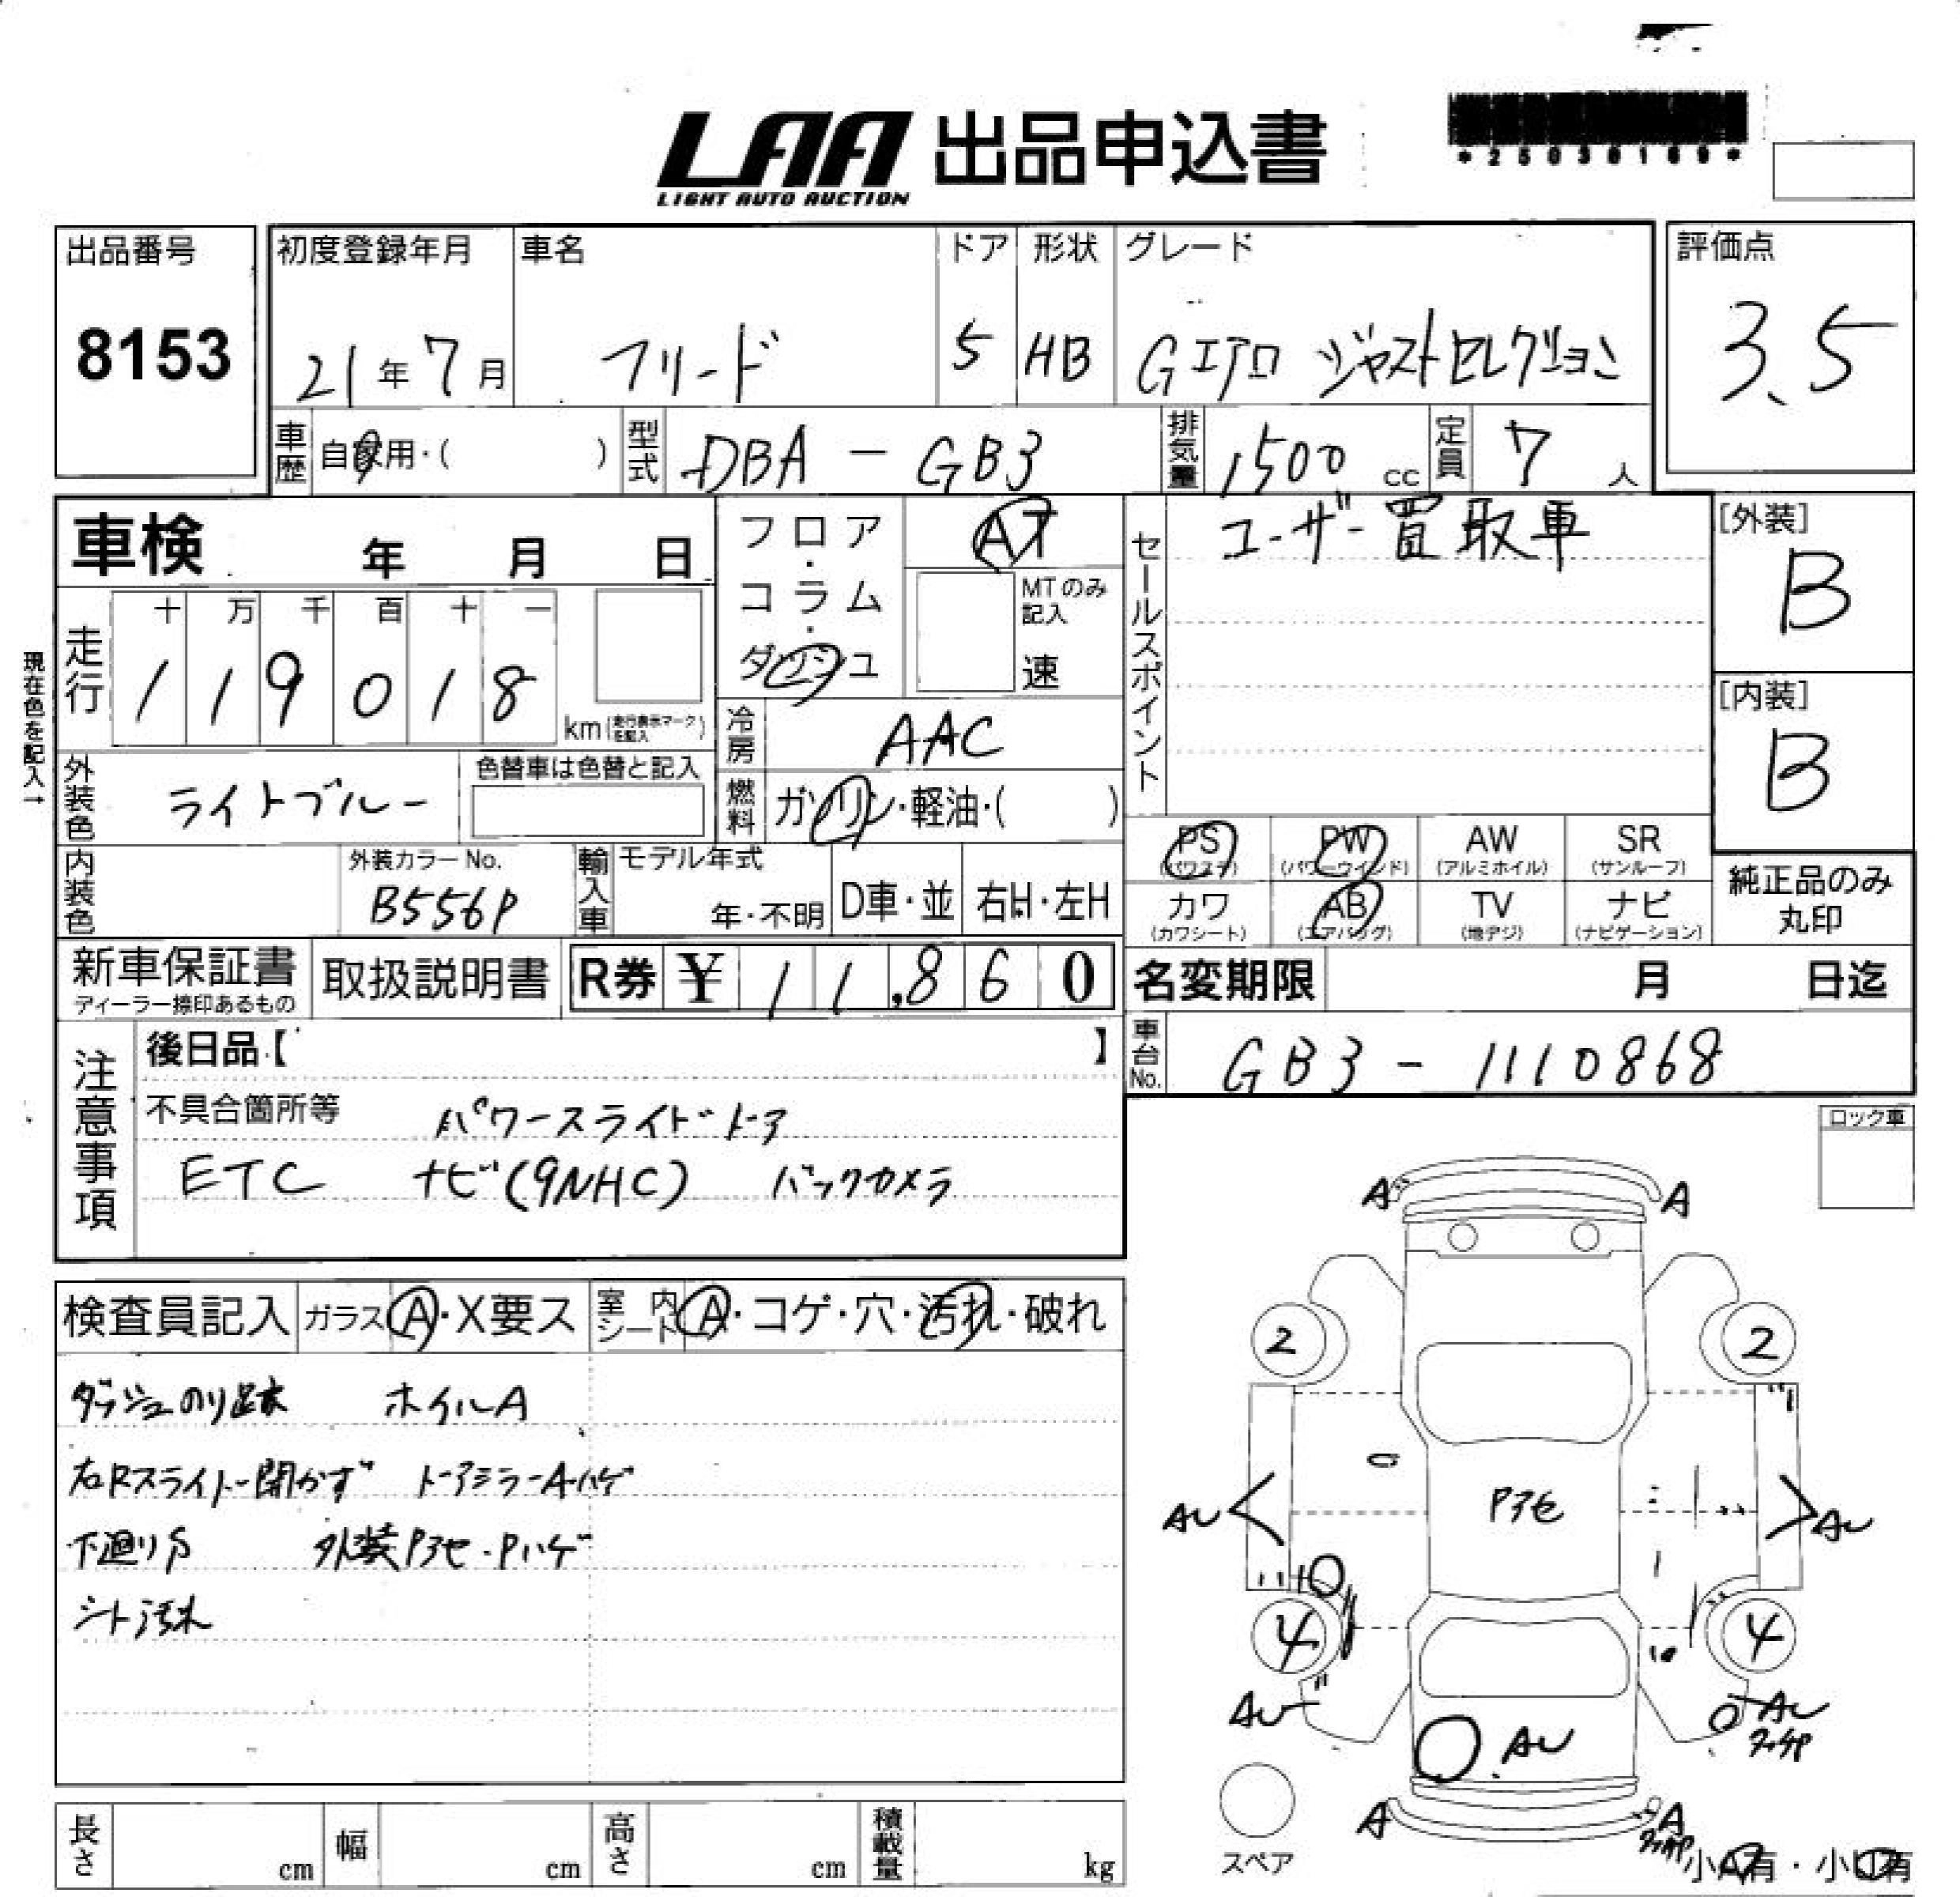 LAA 出品申込書
LIGHT AUTO AUCTION
*25036169*
出品番号
8153
初度登録年月
21年7月
車名
フリード
ドア
5
形状
HB
グレード
Gエアロ ジャストセレクション
評価点
3.5
車歴
自家用・( )
型式
DBA-GB3
排気量
1500 cc
定員
7人
車検 年 月 日
フロア・コラム・ダッシュ
AT
MTのみ記入
速
セールスポイント
ユーザー買取車
[外装]
B
[内装]
B
現在色を記入→
走行
十 万 千 百 十 一
1 1 9 0 1 8
km(走行表示マークを記入)
冷房
AAC
外装色
ライトブルー
色替車は色替と記入
燃料
ガソリン・軽油・( )
内装色
外装カラーNo.
B556P
輸入車
モデル年式
年・不明
D車・並
右H・左H
PS
(パワステ)
PW
(パワーウインド)
AW
(アルミホイル)
SR
(サンルーフ)
カワ
(カワシート)
AB
(エアバッグ)
TV
(地デジ)
ナビ
(ナビゲーション)
純正品のみ
丸印
新車保証書
ディーラー捺印あるもの
取扱説明書
R券 ¥ 11,860
名変期限 月 日迄
車台No.
GB3-1110868
注意事項
後日品【 】
不具合箇所等 パワースライドドア
ETC ナビ(9NHC) バックカメラ
ロック車
検査員記入
ガラス A・X要ス
室内シート A・コゲ・穴・汚れ・破れ
ダッシュのり跡 ホイルA
右Rスライドー開かず ドアミラーA・ハゲ
下廻りS 外装Pアセ・Pハゲ
シート汚れ
A A
2 2
Pアセ
AU AU
4 4
AU AU
AU
A A
スペア
小A有・小U有
長さ cm
幅 cm
高さ cm
積載量 kg